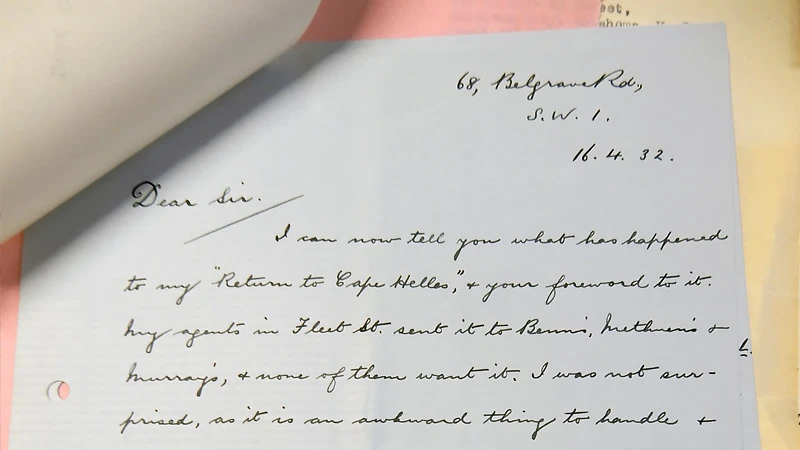 eet,
68, Belgrave Rd.,
S.W. 1.
16. 4. 32.
Dear Sir.
I can now tell you what has happened
to my "Return to Cape Helles," & your foreword to it.
My agents in Fleet St. sent it to Benn's, Methuen's &
Murray's, & none of them want it. I was not sur-
prised, as it is an awkward thing to handle &
L.